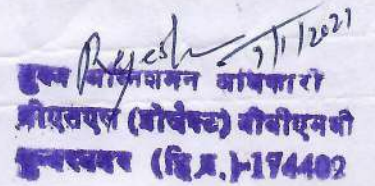 Rajesh 7/1/2021
मुख्य अग्निशमन अधिकारी
बीएसएल (प्रोजेक्ट) बीबीएमबी
सुन्दरनगर (हि.प्र.)-174402